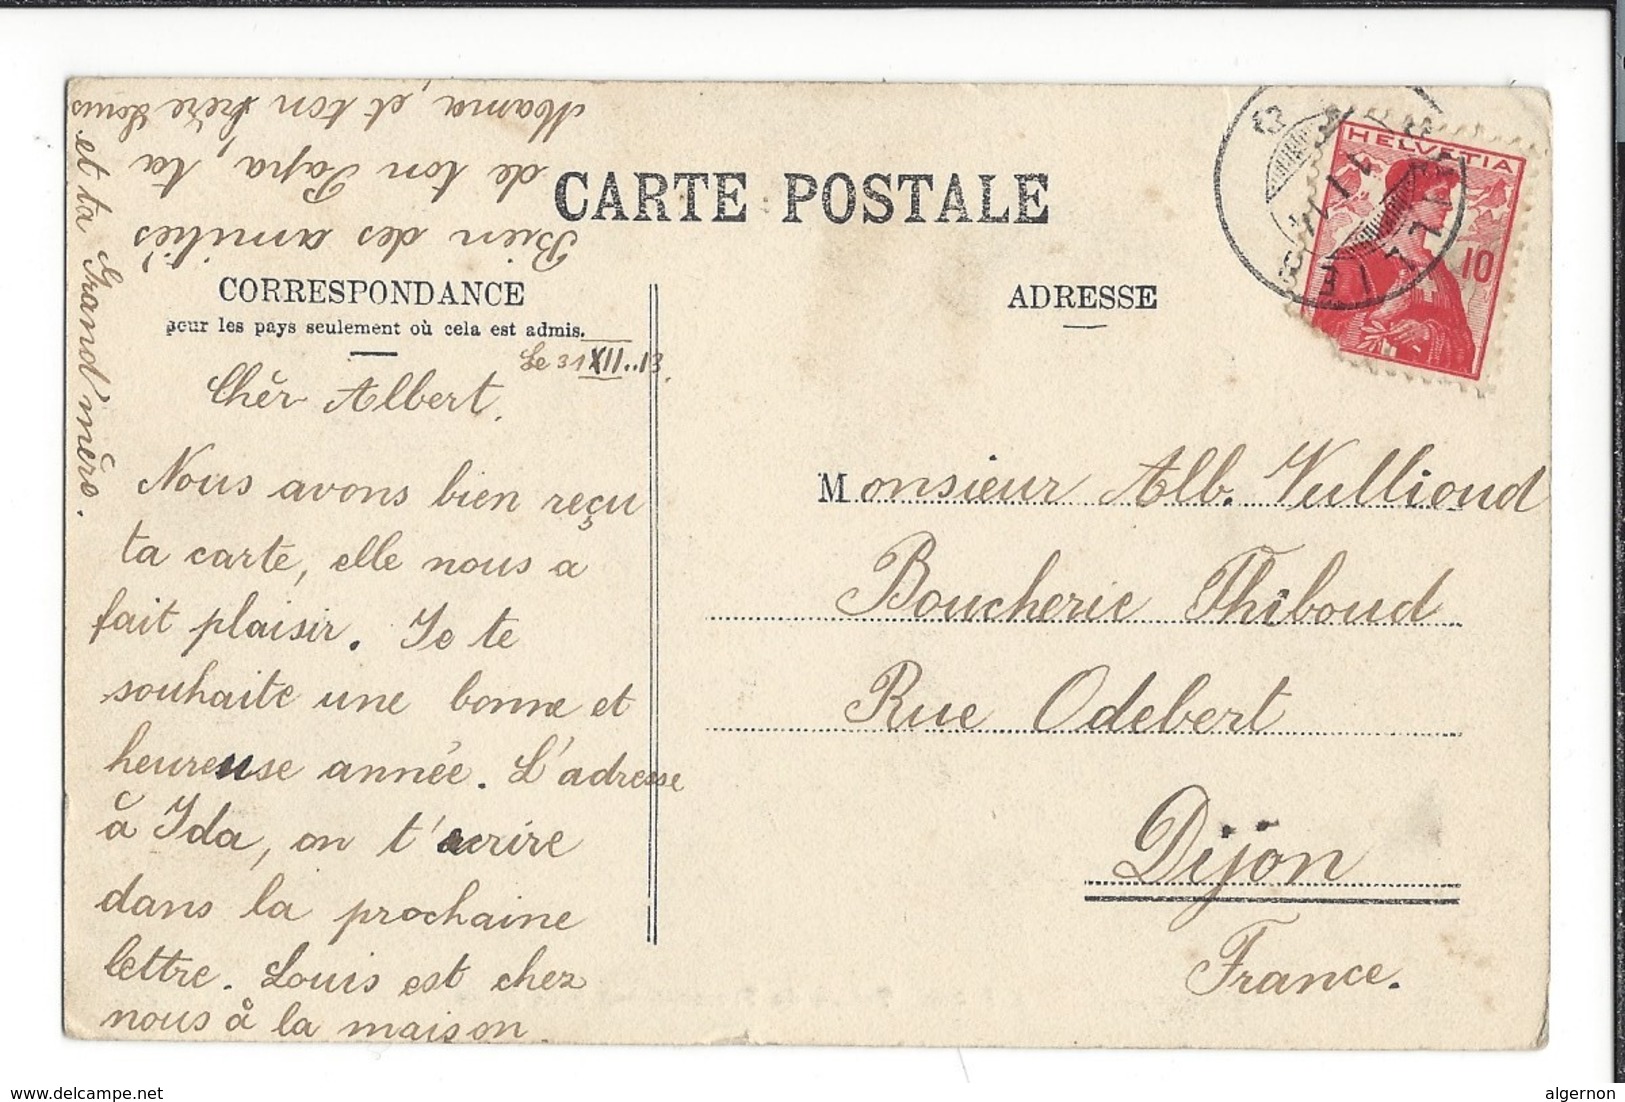 CARTE POSTALE
CORRESPONDANCE
pour les pays seulement où cela est admis.
ADRESSE
Le 31 XII..13.
Chèr Albert.
Nous avons bien reçu
ta carte, elle nous a
fait plaisir. Je te
souhaite une bonne et
heureuse année. L'adresse
à Ida, on t'ecrire
dans la prochaine
lettre. Louis est chez
nous à la maison.
Bien des amitiés
de ton Papa, ta
Mama, et ton frère Louis
et ta Grand'mère.
Monsieur Alb. Vullioud
Boucherie Thiboud
Rue Odebert
Dijon
France.
HELVETIA
10
delcampe.net
algernon